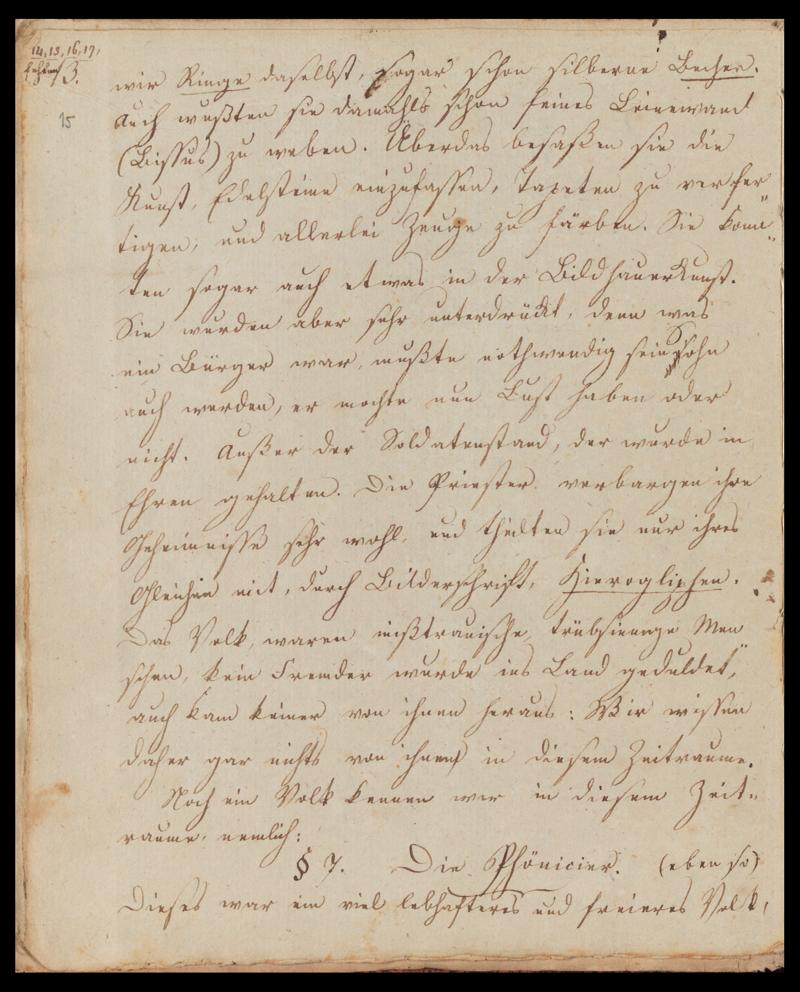 14, 15, 16, 17,
fehlen 13.
15
wir Ringe daselbst, sogar schon silberne Becher.
Auch wußten sie damahls schon feines Leinewand
(Bissus) zu weben. Überdas besaßen sie die
Kunst, Edelsteine einzufassen, Tapeten zu verfer„
tigen, und allerlei Zeuge zu färben. Sie konn„
ten sogar auch etwas in der Bildhauerkunst.
Sie wurden aber sehr unterdrückt, denn was
ein Bürger war, mußte nothwendig sein Sohn
auch werden, er mochte nun Lust haben oder
nicht. Außer der Soldatenstand, der wurde in
Ehren gehalten. Die Priester verbargen ihre
Geheimnisse sehr wohl, und theilten sie nur ihres
Gleichen mit, durch Bilderschrift, Hieroglyphen.
Das Volk, waren mißtrauische, trübsinnige Men„
schen, kein Fremder wurde ins Land geduldet,
auch kam keiner von ihnen heraus: Wir wissen
daher gar nichts von ihnen in diesem Zeitraume.
Noch ein Volk kennen wir in diesem Zeit-
raume, nemlich:
§ 7. Die Phönicier. (eben so)
Dieses war ein viel lebhafteres und freieres Volk,